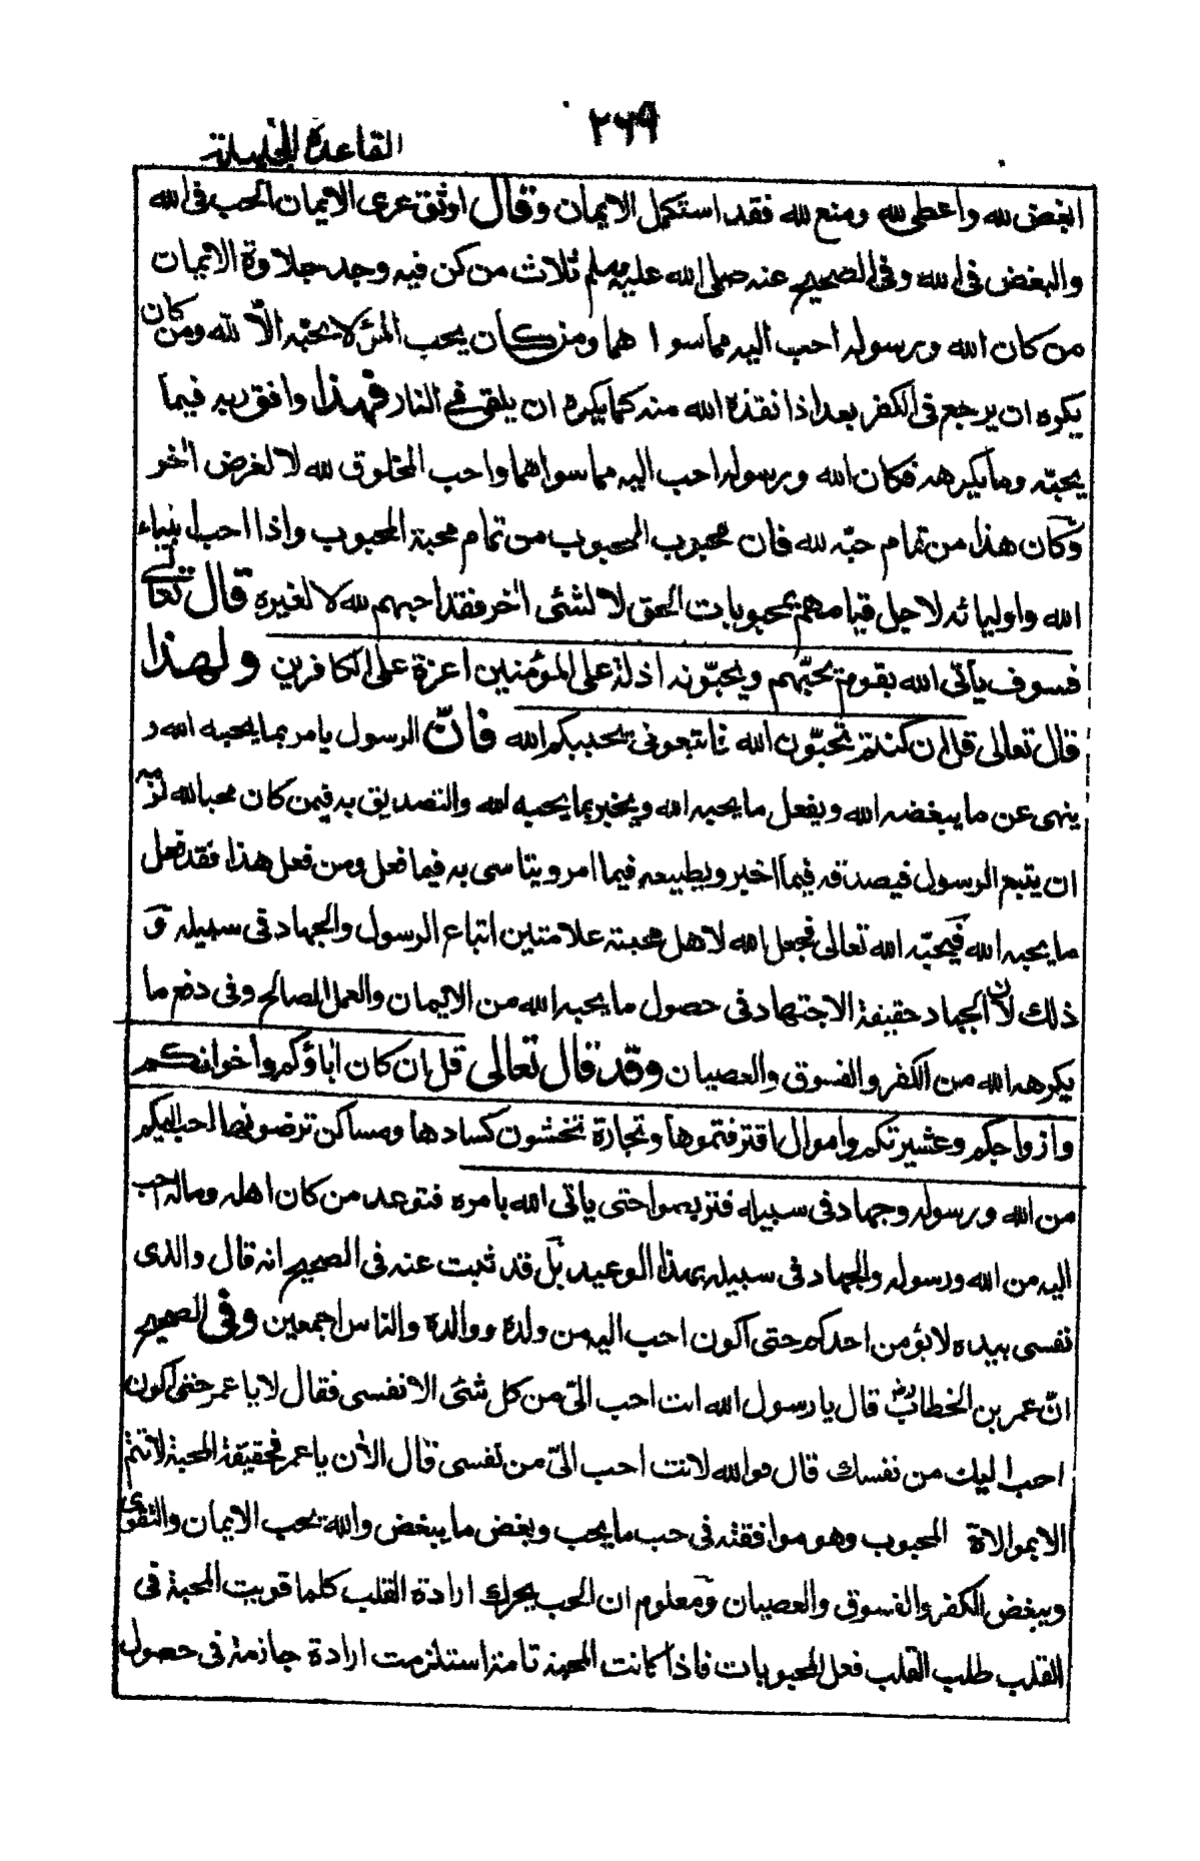 ٢٦٩
القاعدة الجليلة
ابغض لله واعطى لله ومنع لله فقد استكمل الايمان وقال اوثق عرى الايمان الحب فى الله
والبغض فى الله وفى الصحيح عنه صلى الله عليه وسلم ثلاث من كن فيه وجد حلاوة الايمان
من كان الله ورسوله احب اليه مما سوا هما ومن كان يحب المرء لا يحبّه الّا لله ومن كان
يكره ان يرجع فى الكفر بعد اذا نقذه الله منه كما يكره ان يلقى فى النار فهذا وافق ربه فيما
يحبّه وما يكرهه فكان الله ورسوله احب اليه مما سواهما واحب المخلوق لله لا لغرض اٰخر
وكان هذا من تمام حبّه لله فان محبوب المحبوب من تمام محبة المحبوب واذا احب انبياء
الله واوليائه لاجل قيامهم بمحبوبات الحق لا لشئى اٰخر فقد احبهم لله لا لغيره قال تعالى
فسوف يأتى الله بقوم يحبّهم ويحبّونه اذلة على المؤمنين اعزة على الكافرين ولهذا
قال تعالى قل ان كنتم تحبّون الله فاتبعونى يحببكم الله فانّ الرسول يامر بما يحبه الله و
ينهى عن ما يبغضه الله ويفعل ما يحبه الله ويخبر بما يحبه الله والتصديق به فمن كان محبا لله لزمه
ان يتبع الرسول فيصدقه فيما اخبر ويطيعه فيما امر ويتاسى به فيما فعل ومن فعل هذا فقد فعل
ما يحبه الله فيحبّه الله تعالى فجعل الله لاهل محبته علامتين اتباع الرسول والجهاد فى سبيله و
ذلك لان الجهاد حقيقة الاجتهاد فى حصول ما يحبه الله من الايمان والعمل الصالح وفى دفع ما
يكرهه الله من الكفر والفسوق والعصيان وقد قال تعالى قل ان كان اٰباؤكم واخوانكم
وازواجكم وعشيرتكم واموال اقترفتموها وتجارة تخشون كسادها ومساكن ترضونها احب اليكم
من الله ورسوله وجهاد فى سبيله فتربصوا حتى ياتى الله بامره فتوعد من كان اهله وماله احب
اليه من الله ورسوله والجهاد فى سبيله بهذا الوعيد بل قد ثبت عنه فى الصحيح انه قال والذى
نفسى بيده لا يؤمن احدكم حتى اكون احب اليه من ولده ووالده والناس اجمعين وفى الصحيح
انّ عمر بن الخطاب رض قال يا رسول الله انت احب الىّ من كل شئى الا نفسى فقال لا يا عمر حتى اكون
احب اليك من نفسك قال فوالله لانت احب الىّ من نفسى قال الاٰن يا عمر فحقيقة المحبة لا تتم
الا بموالاة المحبوب وهو موافقته فى حب ما يحب وبغض ما يبغض والله يحب الايمان والتقوى
ويبغض الكفر والفسوق والعصيان ومعلوم ان الحب يحرك ارادة القلب كلما قويت المحبة فى
القلب طلب القلب فعل المحبوبات فاذا كانت المحبة تامة استلزمت ارادة جازمة فى حصول